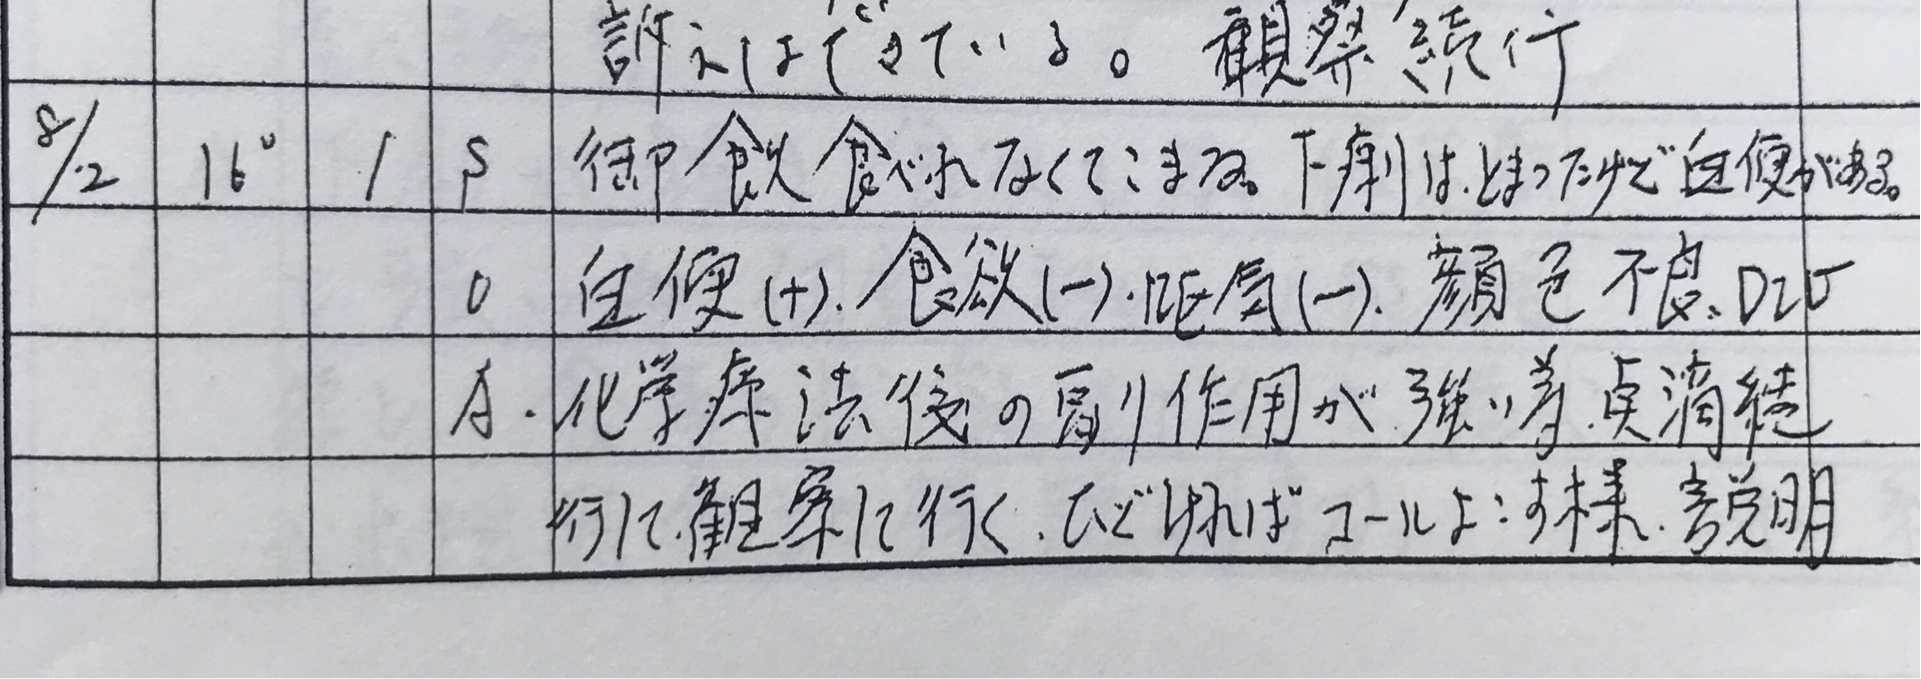 訴えはできている。観察続行
8/2 16° 1 S 御飯食べれなくてこまる。下痢は、とまったけど血便がある。
O 血便(+).食欲(-).嘔気(-).顔色不良、DIV
A. 化学療法後の副作用が強い為.点滴続
行して.観察して行く.ひどければコールよこす様.説明